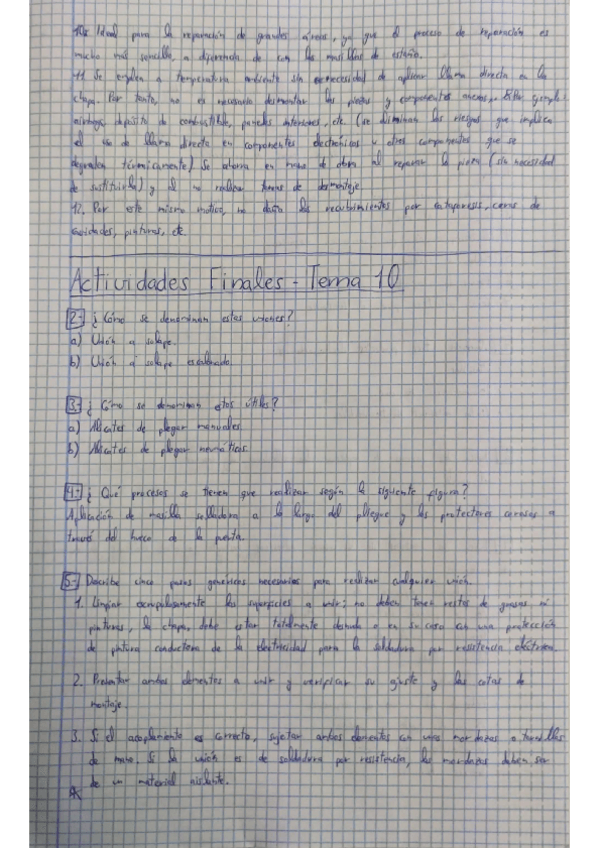 10. Ideal para la reparación de grandes áreas, ya que el proceso de reparación es
mucho más sencillo, a diferencia de con las masillas de estaño.
11. Se emplea a temperatura ambiente sin necesidad de aplicar llama directa en la
chapa. Por tanto, no es necesario desmontar las piezas y componentes anexos,
airbags, depósito de combustible, paneles interiores, etc. (se eliminan los riesgos que implica
el uso de llama directa en componentes electrónicos u otros componentes que se
degraden térmicamente) Se ahorra en mano de obra al reparar la pieza (sin necesidad
de sustituirla) y al no realizar tareas de desmontaje.
12. Por este mismo motivo, no daña los recubrimientos por cataforesis, ceras de
cavidades, pinturas, etc.
Actividades Finales - Tema 10
2- ¿Cómo se denominan estas uniones?
a) Unión a solape.
b) Unión a solape escalonado.
3- ¿Cómo se denominan estos útiles?
a) Alicates de plegar manuales.
b) Alicates de plegar neumáticos.
4- ¿Qué procesos se tienen que realizar según la siguiente figura?
Aplicación de masilla selladora a lo largo del pliegue y los protectores cerosos a
través del hueco de la puerta.
5- Describe cinco pasos genéricos necesarios para realizar cualquier unión.
1. Limpiar escrupulosamente las superficies a unir; no deben tener restos de grasas ni
pinturas, la chapa debe estar totalmente desnuda o en su caso con una protección
de pintura conductora de la electricidad para la soldadura por resistencia eléctrica.
2. Presentar ambos elementos a unir y verificar su ajuste y las cotas de
montaje.
3. Si el acoplamiento es correcto, sujetar ambos elementos con unas mordazas o tornillos
de mano. Si la unión es de soldadura por resistencia, las mordazas deben ser
de un material aislante.